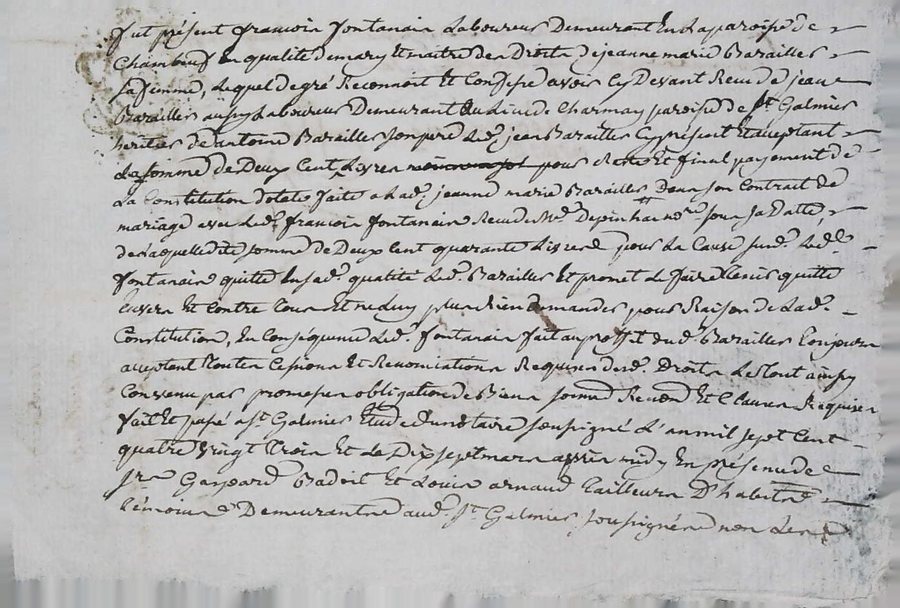 fut présent françois fontanais Laboureur Demeurant En La paroisse de
Chambeuf En qualité de mary Et maitre des Droits de jeanne marie Barailler
sa femme, Lequel de gré Reconnoit Et Confesse avoir Cy Devant Receu de jean
Barailler aussy Laboureur Demeurant au Lieu de Charmay paroisse de St Galmier
heritier de antoine Barailler son pere Led. jean Barailler Cy présent Et acceptant
La somme de Deux Cent Livres pour Reste Et final payement de
La Constitution dotale faite a Lad. jeanne marie Barailler Dans son Contrat de
mariage avec Led. françois fontanais Receu Me Depinhac nore sous sa Datte,
de laquelle dite somme de Deux Cent quarante Livres pour La Cause susd. Led.
fontanais quitte En sad. qualité Led. Barailler Et promet Le faire tenir quitte
Envers Et Contre tous Et ne Luy plus Rien Demander pour Raison de Lad.
Constitution, En Conséquence Led. fontanais fait au proffit dud. Barailler
acceptant toutes Cessions Et Renonciations Requises desd. Droits Le tout ainsy
Convenu par promesses obligation de Biens soumis Renond Et Clauses Requises
fait Et passé a St Galmier Etude du notaire soussigné L'an mil sept Cent
quatre vingt Trois Et Le Dix sept mars après midy En présence de
Srs Gaspard Badoit Et Louis arnaud tailleurs D'habits
témoins Demeurants aud. St Galmier soussignés non Led.